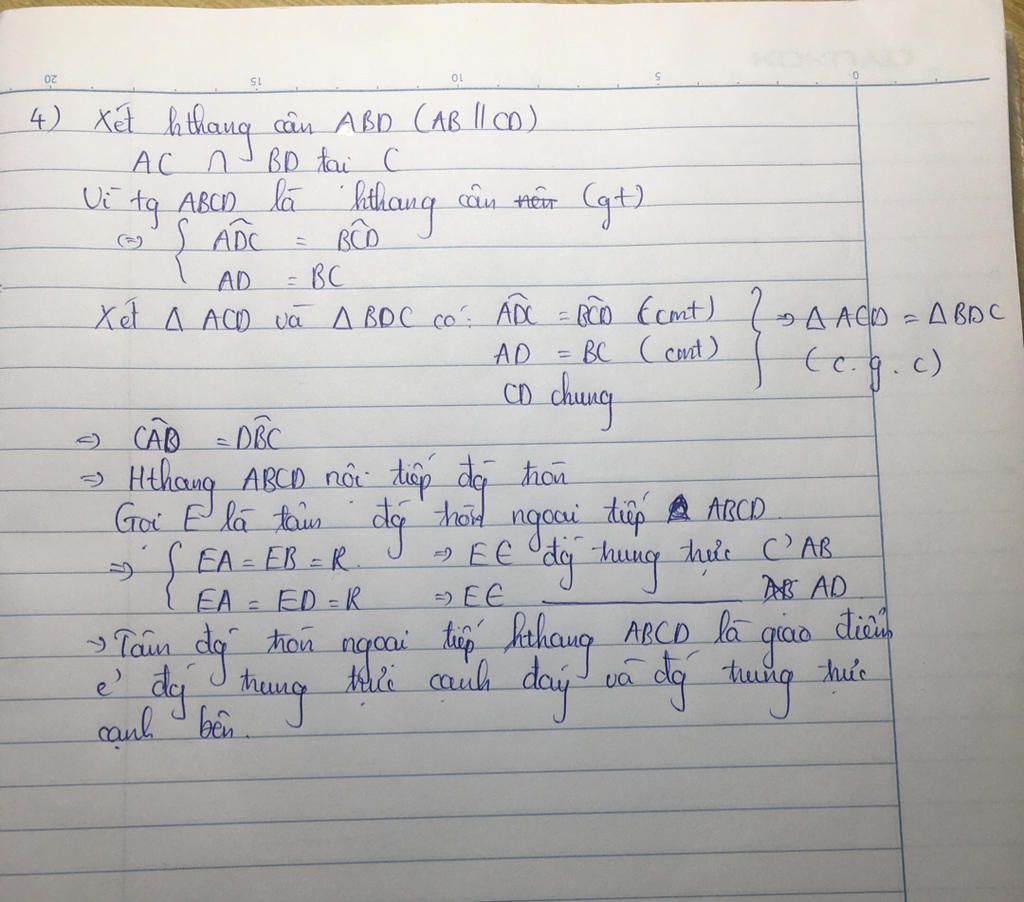 20 15 10 5 0
4) Xét hthang cân ABD (AB // CD)
AC ∩ BD tại C
Vì tg ABCD là hthang cân nên (gt)
(=) { ADC = BCD
AD = BC
Xét Δ ACD và Δ BDC có: ADC = BCD (cmt) } => Δ ACD = Δ BDC
AD = BC (cmt) (c.g.c)
CD chung
=> CAD = DBC
=> Hthang ABCD nội tiếp đg tròn
Gọi E là tâm đg tròn ngoại tiếp ABCD
=> { EA = EB = R => E ∈ đg trung trực C' AB
EA = ED = R => E ∈ ——— AD
→ Tâm đg tròn ngoại tiếp hthang ABCD là giao điểm
e' đg trung trực cạnh đáy và đg trung trực
cạnh bên.